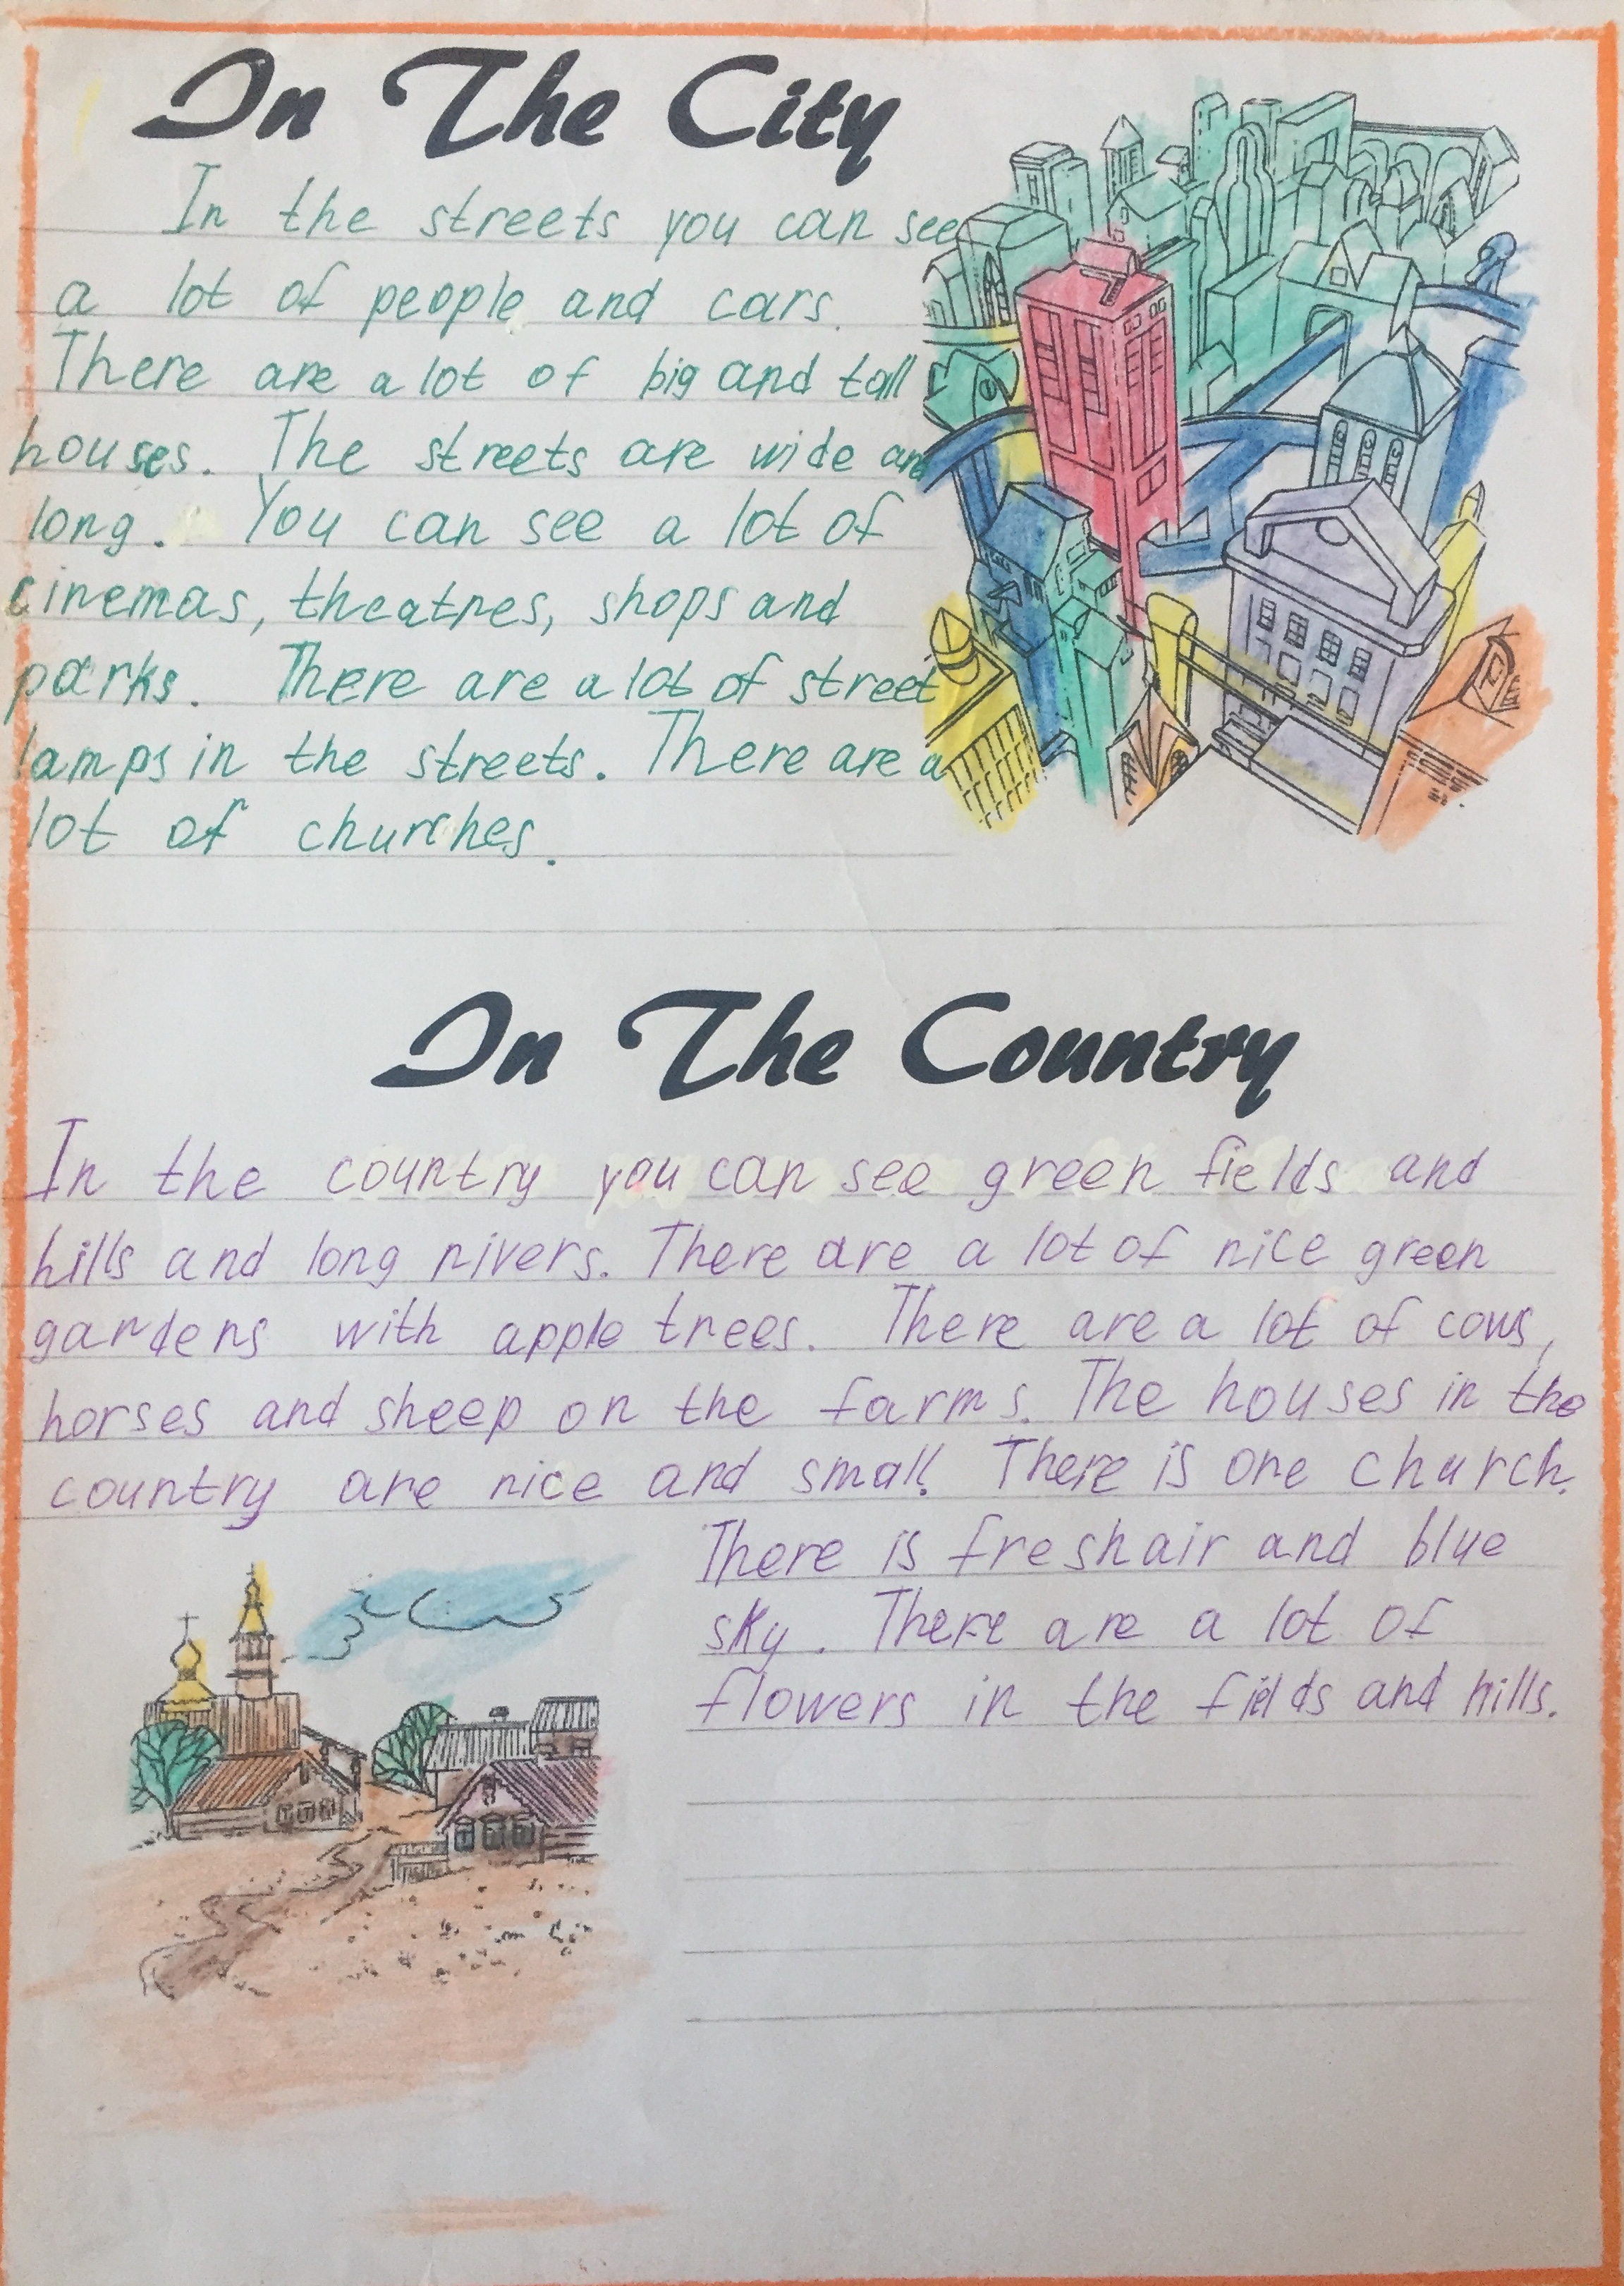 In The City
In the streets you can see
a lot of people and cars.
There are a lot of big and tall
houses. The streets are wide and
long. You can see a lot of
cinemas, theatres, shops and
parks. There are a lot of street
lamps in the streets. There are a
lot of churches.
In The Country
In the country you can see green fields and
hills and long rivers. There are a lot of nice green
gardens with apple trees. There are a lot of cows,
horses and sheep on the farms. The houses in the
country are nice and small. There is one church.
There is fresh air and blue
sky. There are a lot of
flowers in the fields and hills.